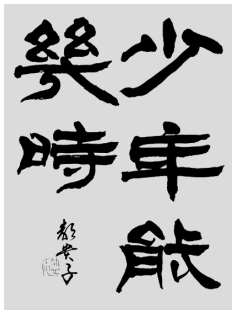 少年能
幾時